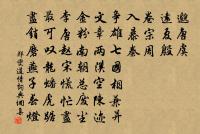 邈唐虞
遠夏殷
卷宗周
入暴秦
爭雄七國相兼并
文章兩漢空陳迹
金粉南朝總廢塵
李唐趙宋慌忙盡
最可嘆龍蟠虎踞
盡銷磨燕子春燈
鄭燮道情詞典網書